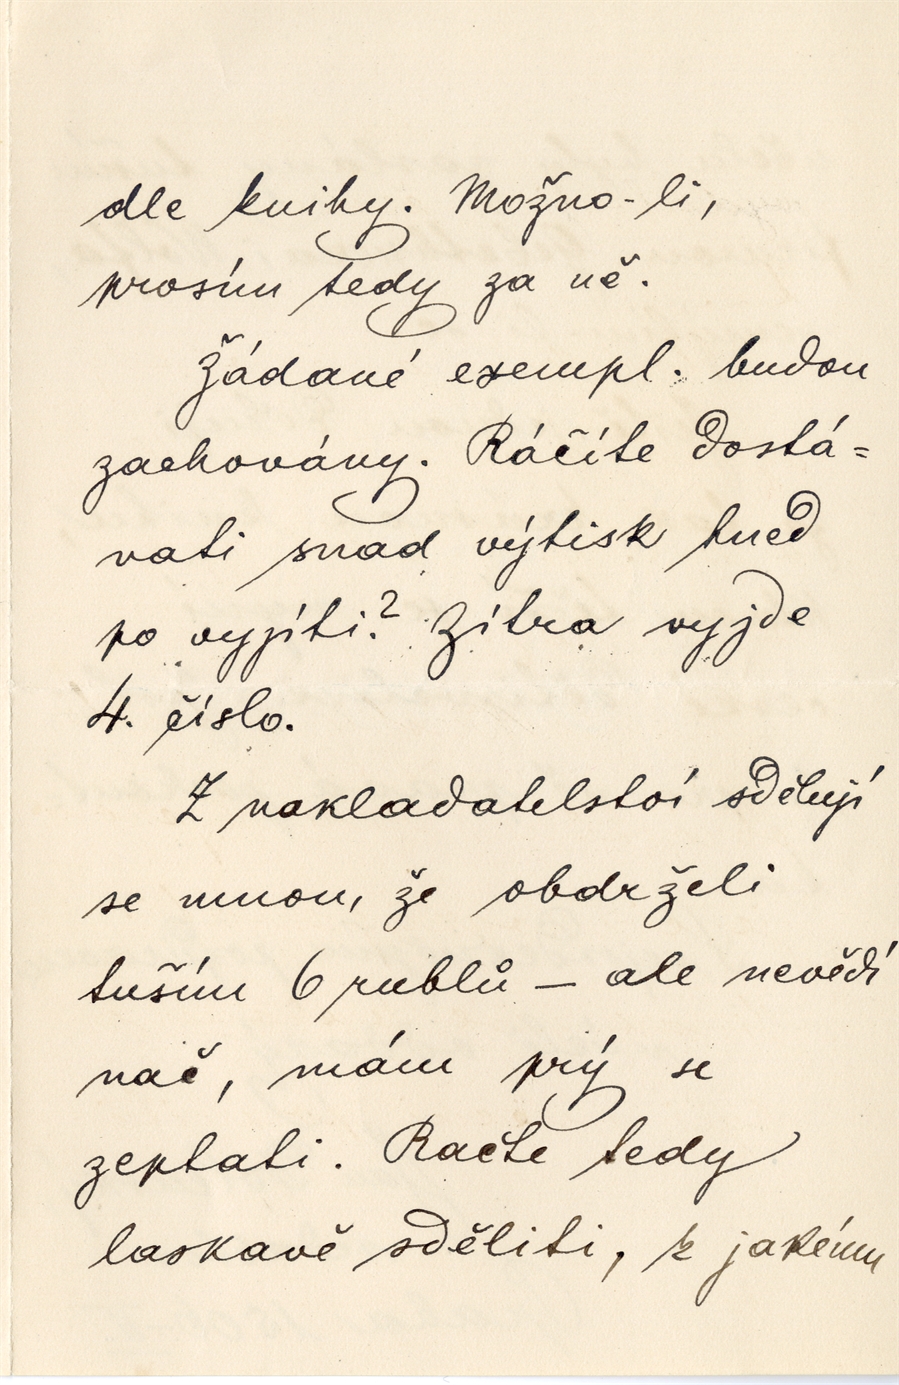 dle knihy. Možno-li,
prosím tedy za ně.
Žádané exempl. budou
zachovány. Ráčíte dostá=
vati snad výtisk hned
po vyjíti? Zítra vyjde
4. číslo.
Z nakladatelství sdělují
se mnou, že obdrželi
tuším 6 rublů — ale nevědí
nač, mám prý se
zeptati. Račte tedy
laskavě sděliti, k jakému